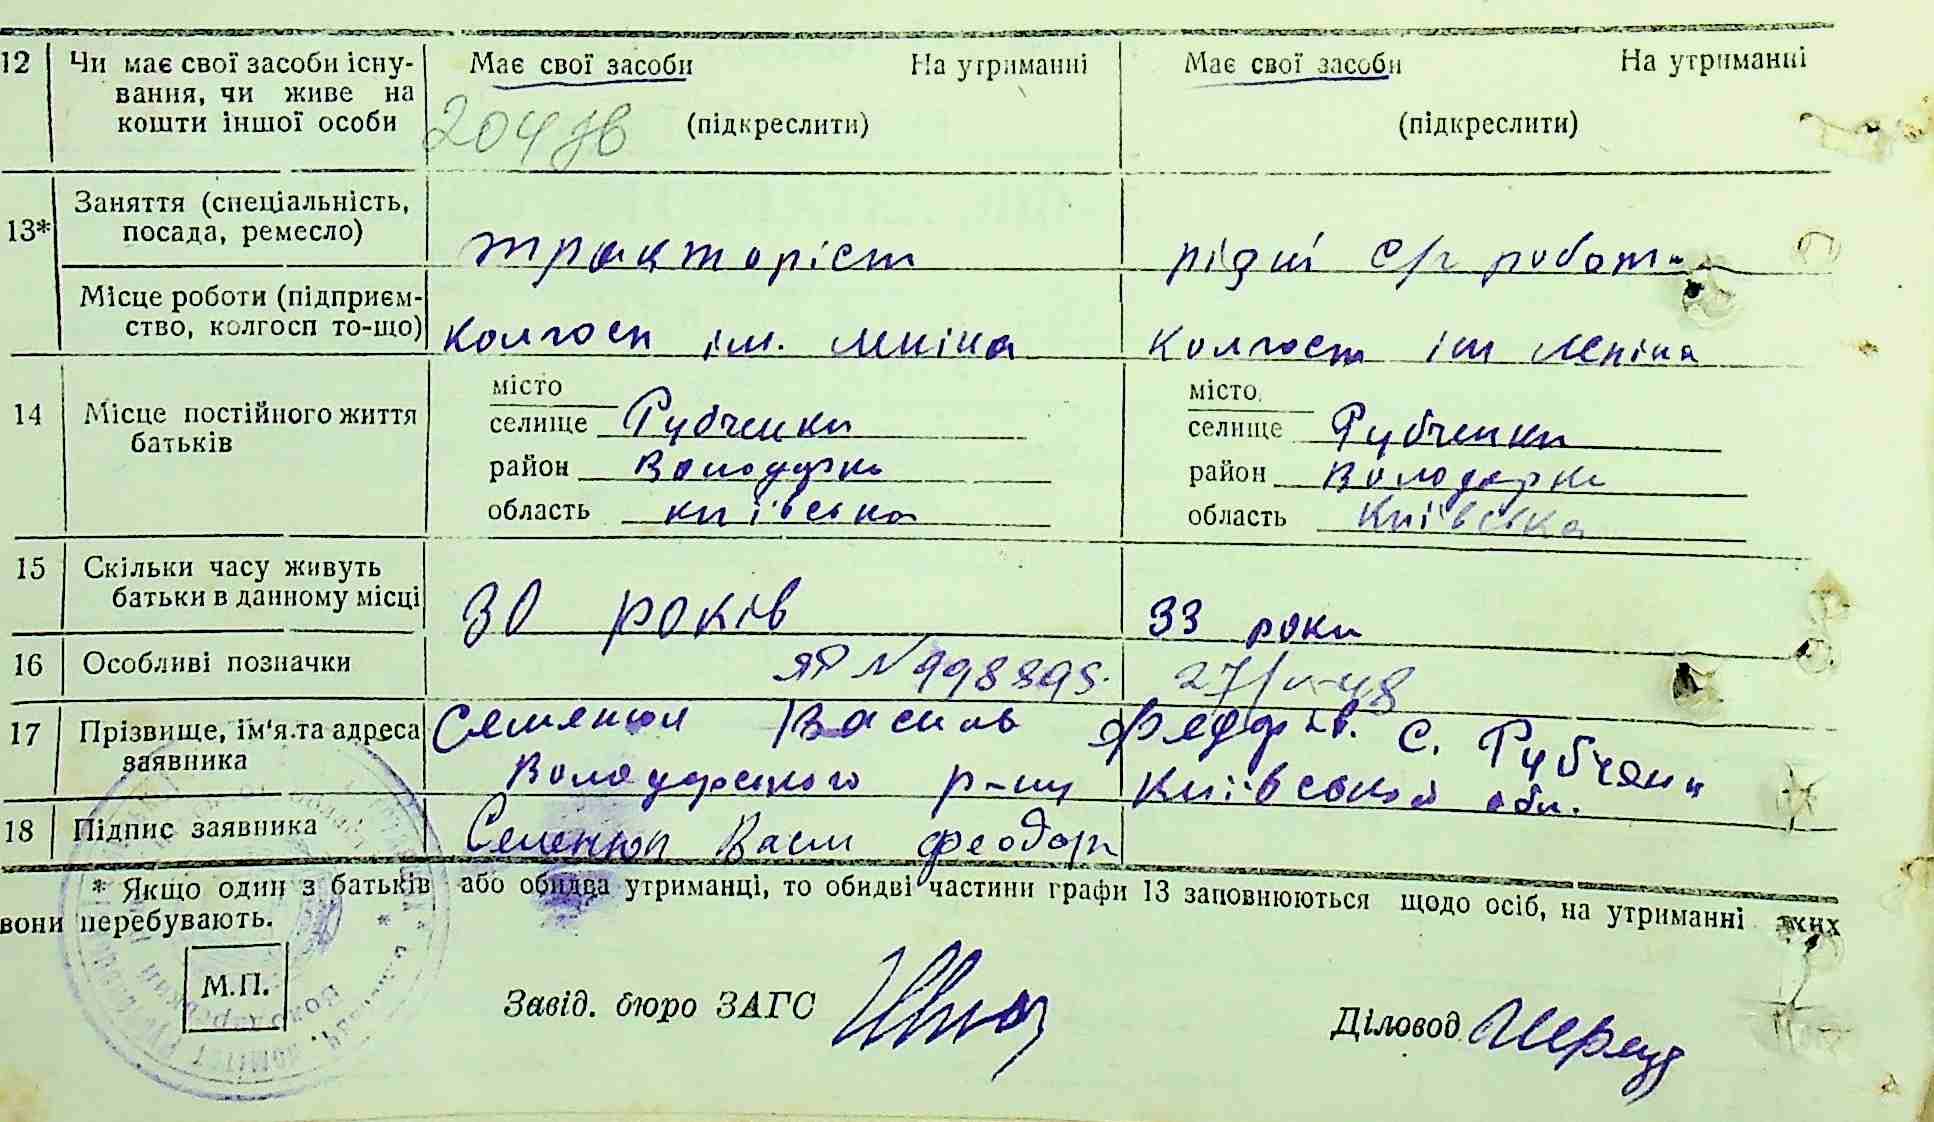 12 Чи має свої засоби існу- Має свої засоби На утриманні Має свої засоби На утриманні
вання, чи живе на
кошти іншої особи 204 (підкреслити) (підкреслити)
13* Заняття (спеціальність,
посада, ремесло) тракторіст рідні с/г робота
Місце роботи (підприєм-
ство, колгосп то-що) Колгосп ім. Леніна Колгосп ім Леніна
14 Місце постійного життя місто місто
батьків селище Рубченки селище Рубченки
район Володарка район Володарка
область київська область Київська
15 Скільки часу живуть
батьки в данному місці 30 років 33 роки
16 Особливі позначки ЯР № 998895. 27/V-48
17 Прізвище, ім'я.та адреса Семенюк Василь Федор. с. Рубченки
заявника Володарського р-ну Київської обл.
18 Підпис заявника Семенюк Васил феодор
* Якщо один з батьків або обидва утриманці, то обидві частини графи 13 заповнюються щодо осіб, на утриманні яких
вони перебувають.
М.П.
Завід. бюро ЗАГС
Діловод